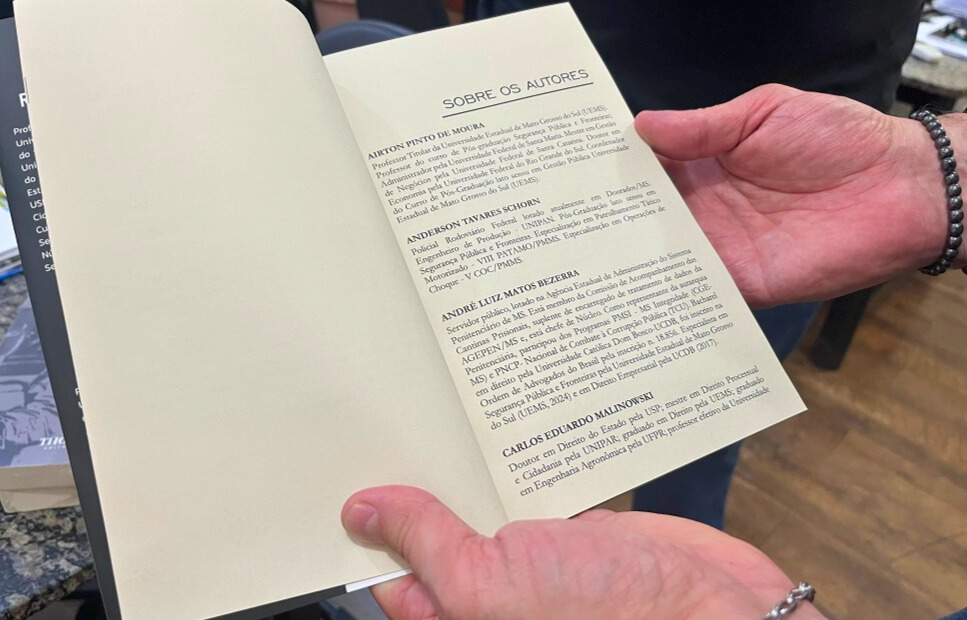 SOBRE OS AUTORES
AIRTON PINTO DE MOURA
Professor Titular da Universidade Estadual de Mato Grosso do Sul (UEMS).
Professor do curso de Pós-graduação Segurança Pública e Fronteiras;
Administrador pela Universidade Federal de Santa Maria. Mestre em Gestão
de Negócios pela Universidade Federal de Santa Catarina. Doutor em
Economia pela Universidade Federal do Rio Grande do Sul. Coordenador
do Curso de Pós-Graduação lato sensu em Gestão Pública Universidade
Estadual de Mato Grosso do Sul (UEMS).
ANDERSON TAVARES SCHORN
Policial Rodoviário Federal lotado atualmente em Dourados/MS.
Engenheiro de Produção - UNIPAN. Pós-Graduação lato sensu em
Segurança Pública e Fronteiras. Especialização em Patrulhamento Tático
Motorizado - VIII PATAMO/PMMS. Especialização em Operações de
Choque - V COC/PMMS.
ANDRÉ LUIZ MATOS BEZERRA
Servidor público, lotado na Agência Estadual de Administração do Sistema
Penitenciário de MS. Está membro da Comissão de Acompanhamento das
Cantinas Prisionais, suplente de encarregado de tratamento de dados da
AGEPEN/MS e, está chefe de Núcleo. Como representante da autarquia
Penitenciária, participou dos Programas PMSI - MS Integridade (CGE-
MS) e PNCP - Nacional de Combate à Corrupção Pública (TCU). Bacharel
em direito pela Universidade Católica Dom Bosco-UCDB foi inscrito na
Ordem de Advogados do Brasil pela inscrição n. 18.856. Especialista em
Segurança Pública e Fronteiras pela Universidade Estadual de Mato Grosso
do Sul (UEMS, 2024) e em Direito Empresarial pela UCDB (2017).
CARLOS EDUARDO MALINOWSKI
Doutor em Direito do Estado pela USP; mestre em Direito Processual
e Cidadania pela UNIPAR; graduado em Direito pela UEMS; graduado
em Engenharia Agronômica pela UFPR; professor efetivo da Universidade